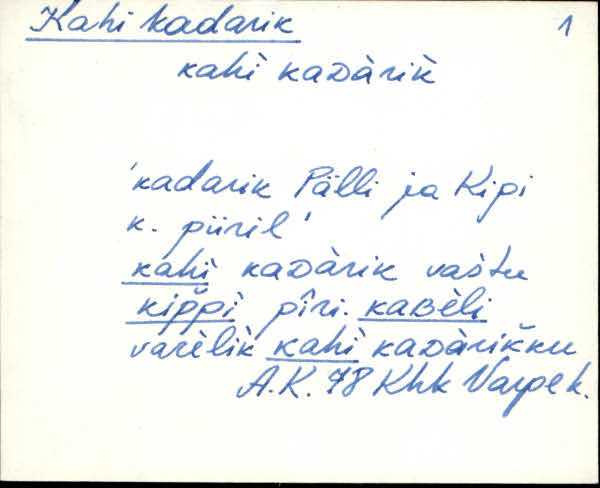 Kahi kadarik 1
kahì kaᴅàrik̀
'kadarik Pälli ja Kipi
k. piiril'
kahì kaᴅàrik vaštu
kip̆pì pîri. kaʙèli
varèlik̀ kahì kaᴅàrik̆ku
A.K. 78 Khk Varpe k.